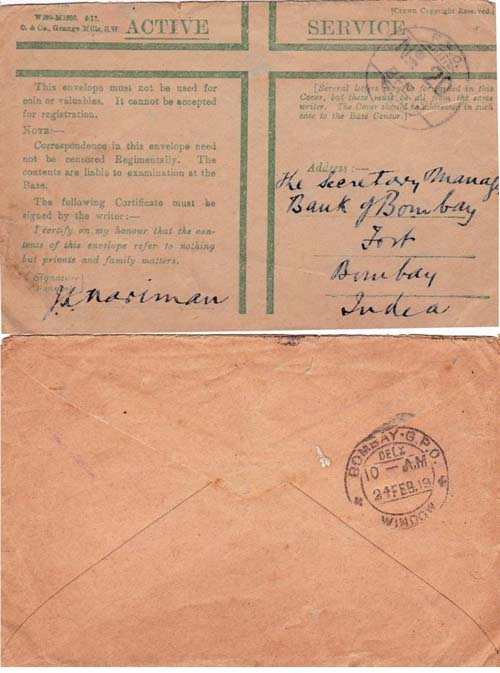 W.1299-M1866. 9-17.
D. & Co., Grange Mills, S.W.
[Crown Copyright Reserved.]
ACTIVE SERVICE
This envelope must not be used for
coin or valuables. It cannot be accepted
for registration.
NOTE:—
Correspondence in this envelope need
not be censored Regimentally. The
contents are liable to examination at the
Base.
The following Certificate must be
signed by the writer:—
I certify on my honour that the con-
tents of this envelope refer to nothing
but private and family matters.
Signature
nariman
[Several letters may be forwarded in this
Cover, but these must be all from the same
writer. The Cover should be addressed in such
case to the Base Censor.]
Address:—
The Secretary Manag
Bank of Bombay
Fort
Bombay
India
BOMBAY·G.P.O.
DELY
10 - A.M
24 FEB. 19
WINDOW